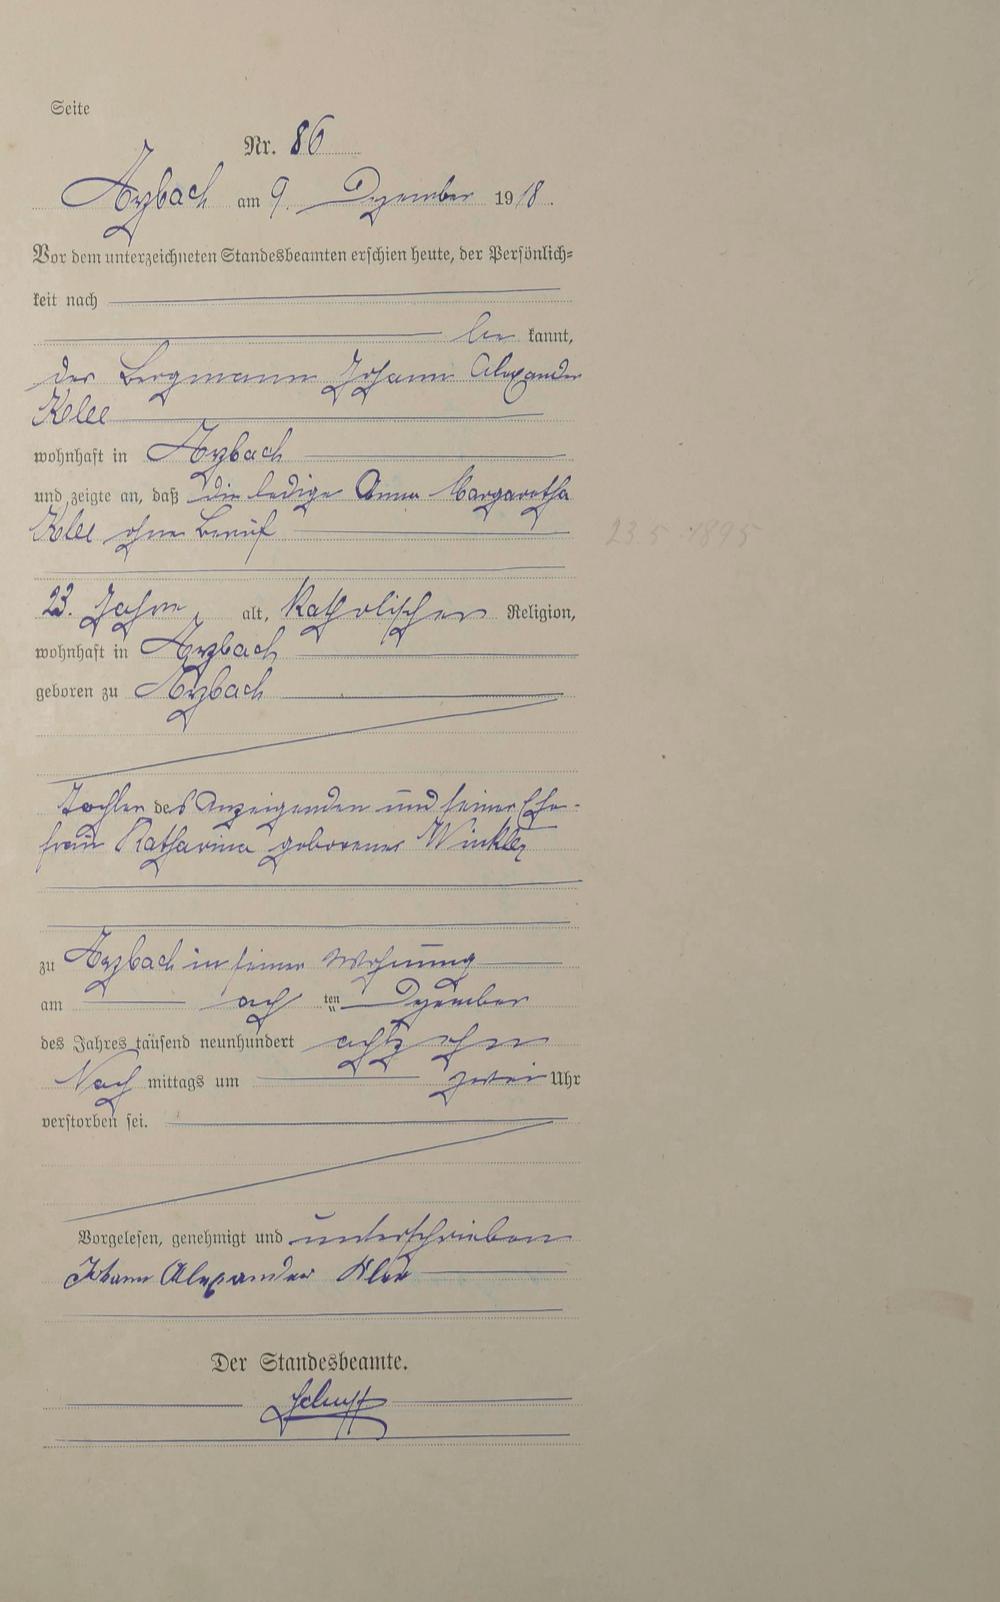 Seite
Nr. 86
Arzbach am 9. Dezember 1918.
Vor dem unterzeichneten Standesbeamten erschien heute, der Persönlich-
keit nach
be kannt,
der Bergmann Johann Alexander
Klee
wohnhaft in Arzbach
und zeigte an, daß die ledige Anna Margaretha
Klee ohne Beruf
23.5.1895
23. Jahre alt, Katholischer Religion,
wohnhaft in Arzbach
geboren zu Arzbach
Tochter des Anzeigenden und seiner Ehe-
frau Katharina geborenen Winkler
zu Arzbach in seiner Wohnung
am ach ten Dezember
des Jahres tausend neunhundert achtzehn
Nach mittags um zwei Uhr
verstorben sei.
Vorgelesen, genehmigt und unterschrieben
Johann Alexander Klee
Der Standesbeamte.